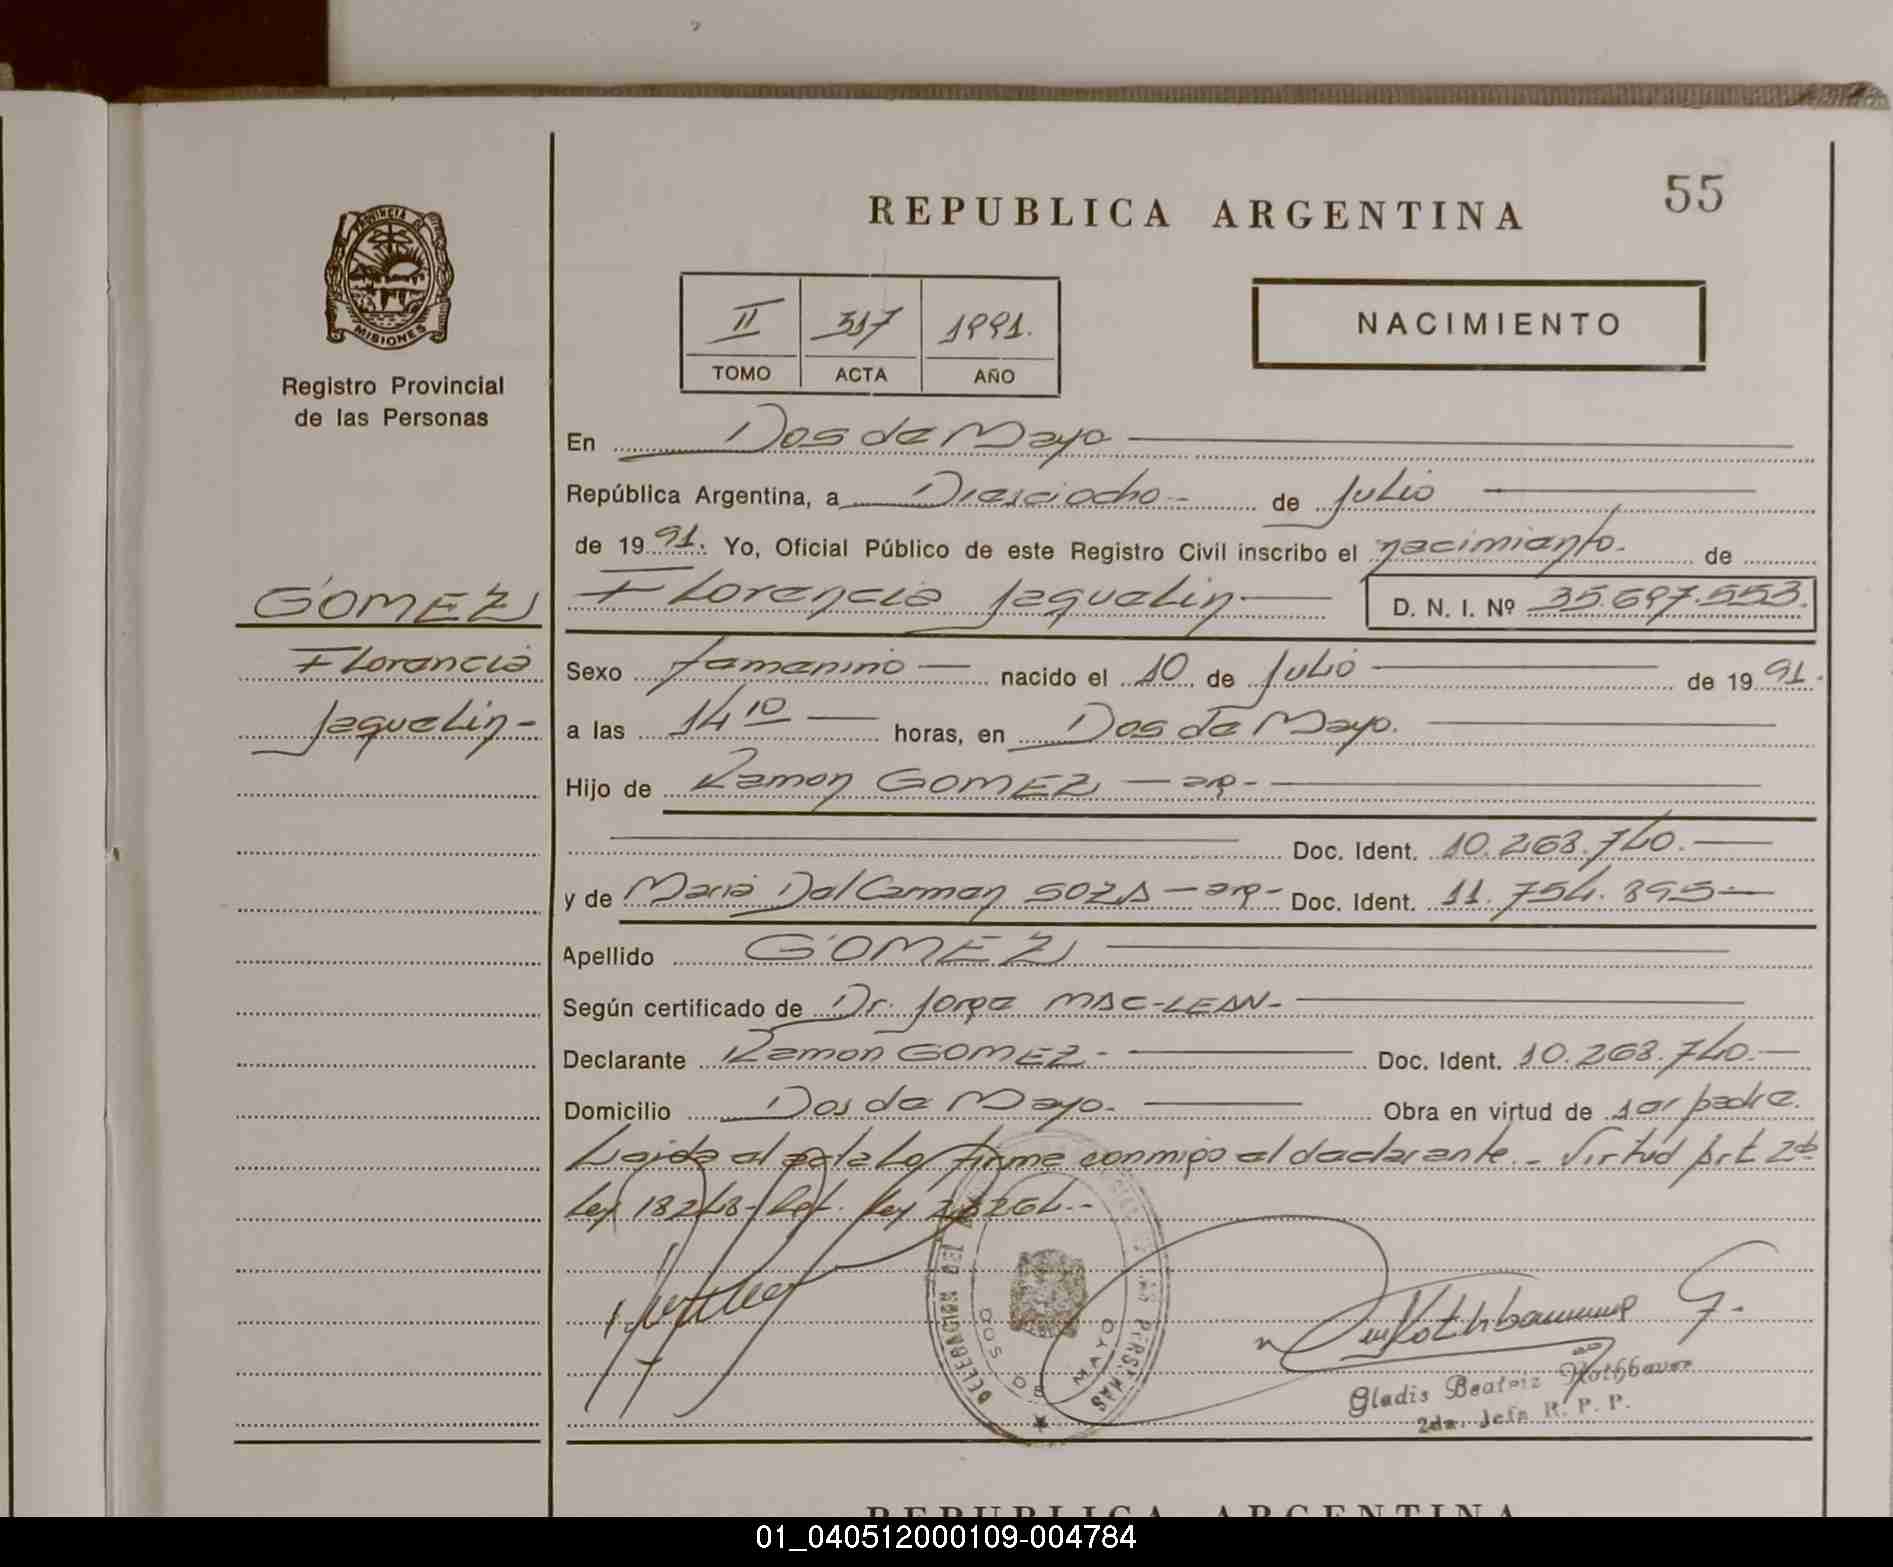 55
REPUBLICA ARGENTINA
PROVINCIA DE
MISIONES
Registro Provincial
de las Personas
II 317 1991.
TOMO ACTA AÑO
NACIMIENTO
En Dos de Mayo
República Argentina, a Diesciocho - de Julio
de 1991. Yo, Oficial Público de este Registro Civil inscribo el nacimiento. de
GOMEZ
Florencia Jaquelin D. N. I. Nº 35.697.553.
Florencia
Jaquelin -
Sexo femenino nacido el 10 de Julio de 1991.
a las 14 10 horas, en Dos de Mayo.
Hijo de Ramon GOMEZ - arg -
Doc. Ident. 10.268.740.
y de Maria Del Carmen SOZA - arg - Doc. Ident. 11.754.895
Apellido GOMEZ
Según certificado de Dr. Jorge MAC-LEAN -
Declarante Ramon GOMEZ - Doc. Ident. 10.268.740.
Domicilio Dos de Mayo. Obra en virtud de ser padre.
Leida el acta la firma conmigo el declarante. - Virtud Art. 2do
Ley 18248 - Ley 23264. -
DELEGACION DE LAS PERSONAS
DOS DE MAYO
Gladis Beatriz Rothbauer
2da. Jefa R. P. P.
REPUBLICA ARGENTINA
01_040512000109-004784